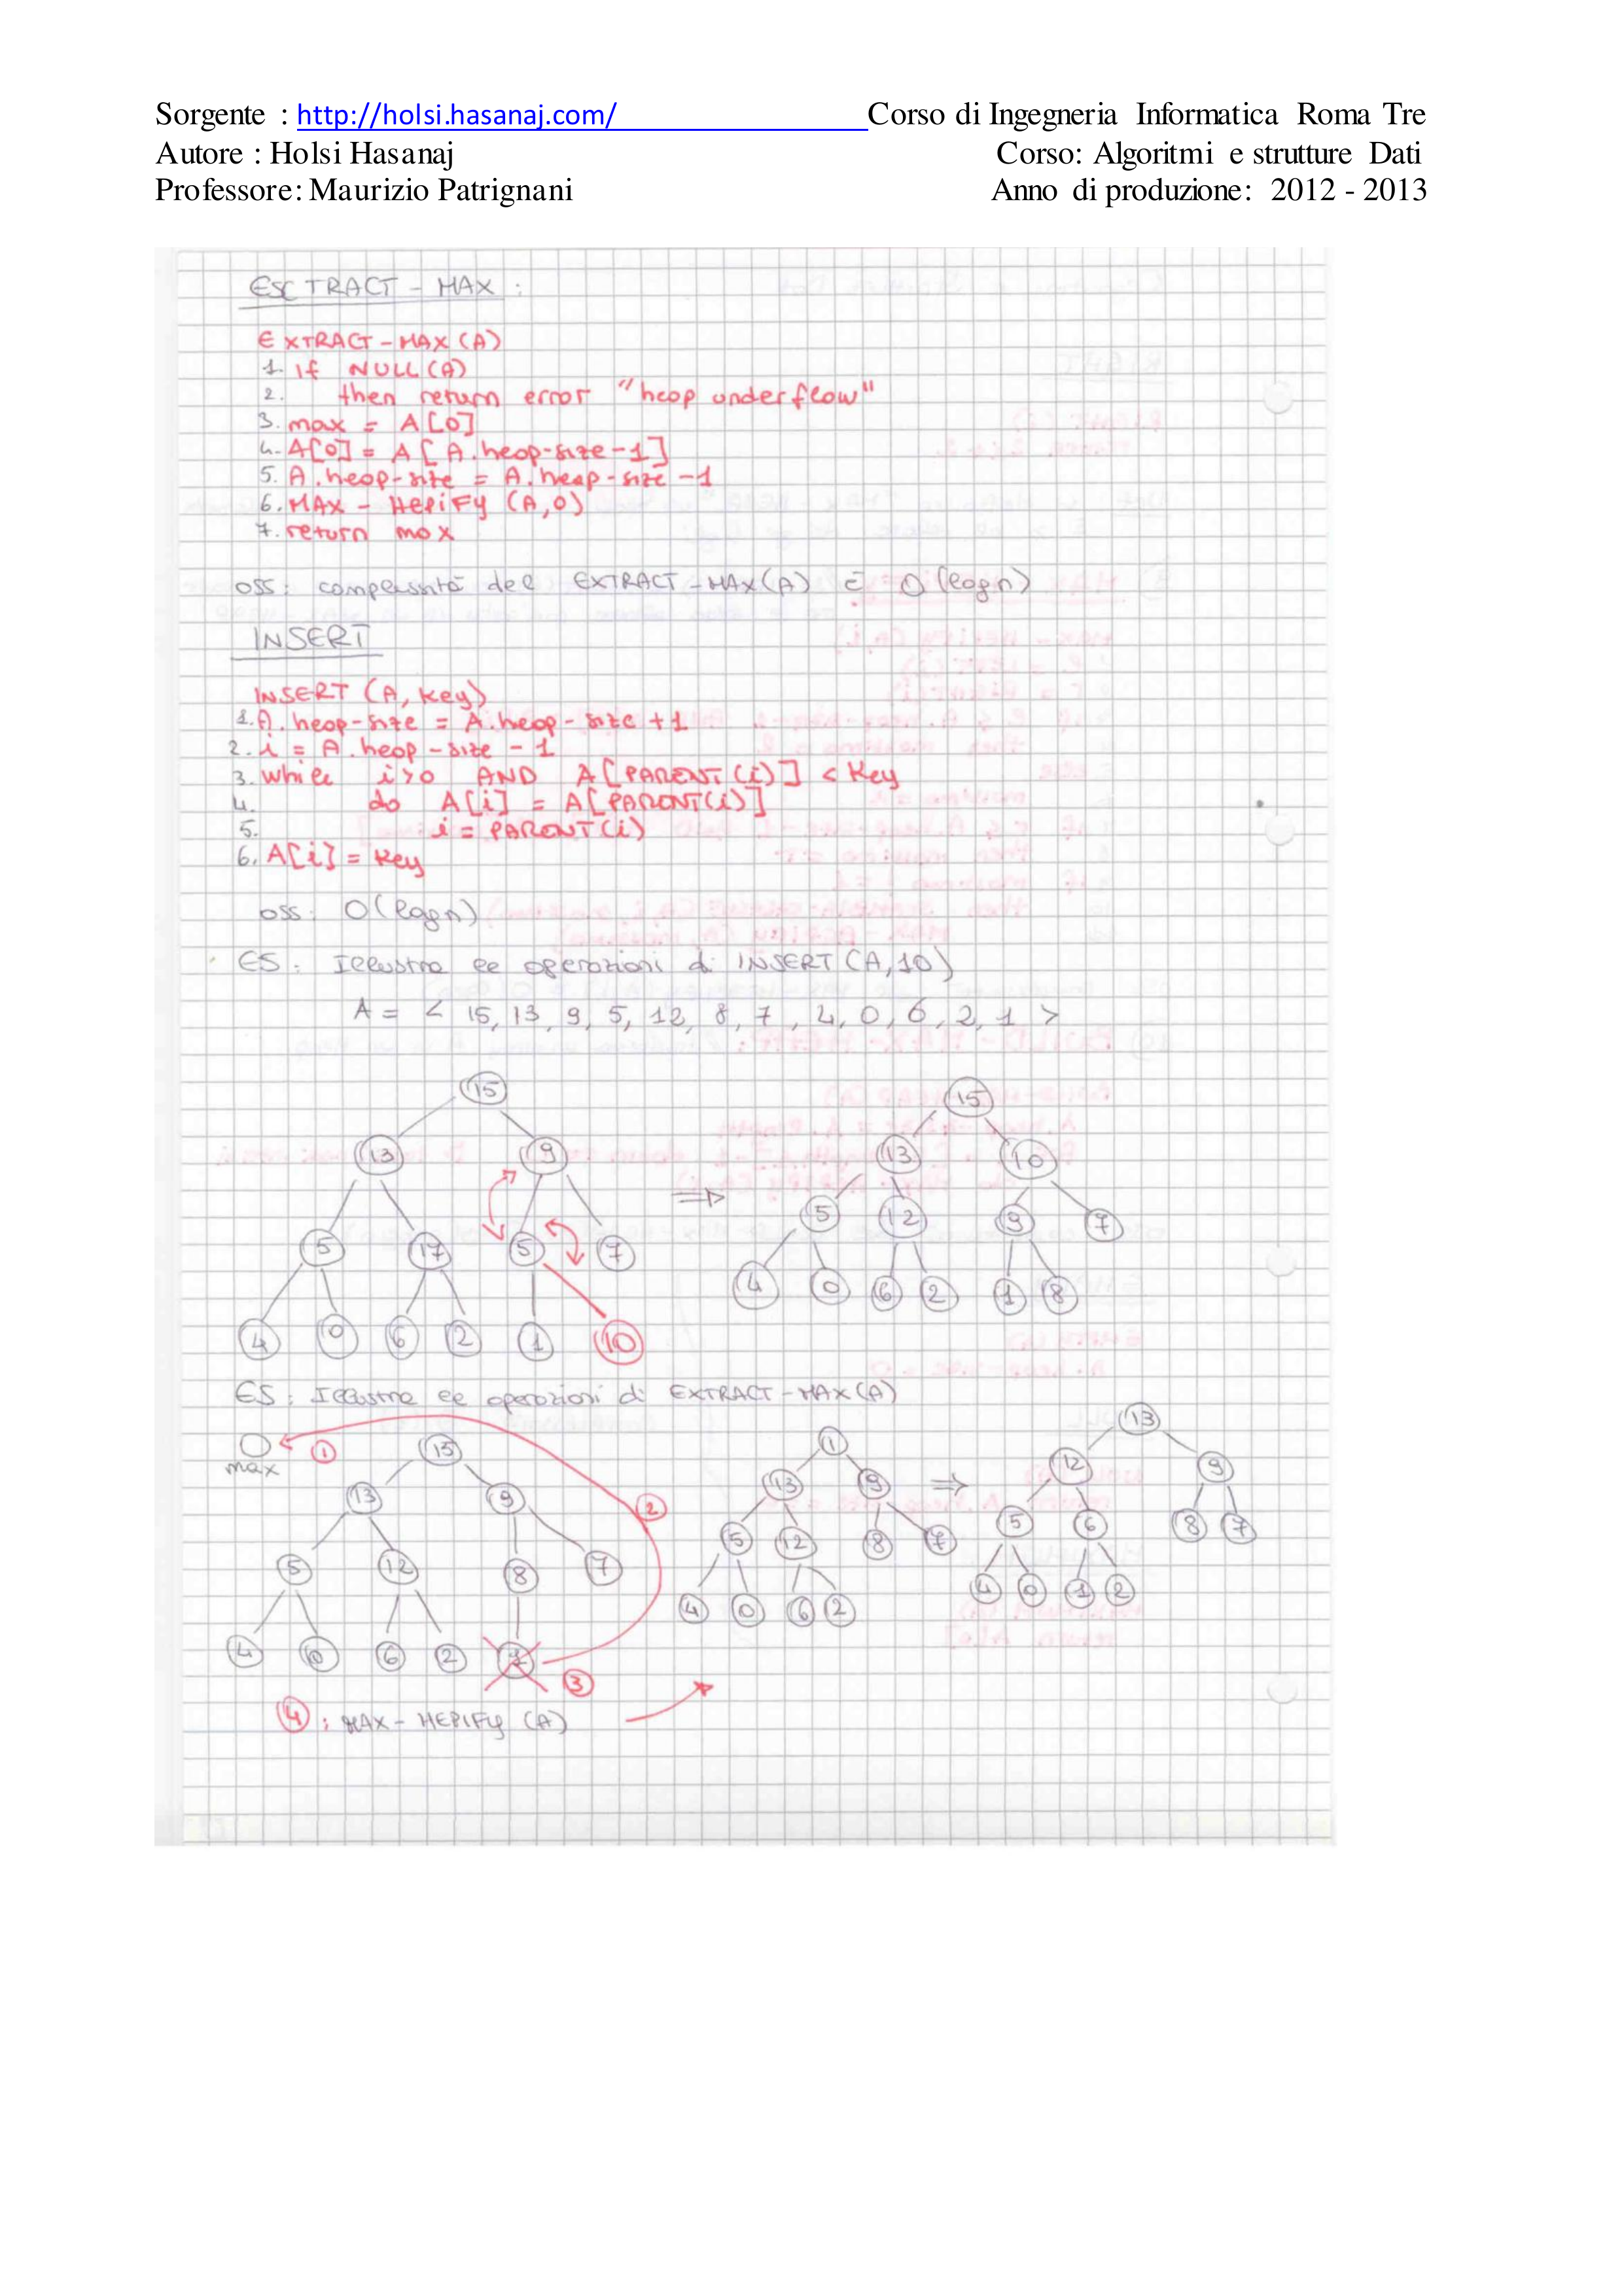 Sorgente : http://holsi.hasanaj.com/ Corso di Ingegneria Informatica Roma Tre
Autore : Holsi Hasanaj Corso: Algoritmi e strutture Dati
Professore: Maurizio Patrignani Anno di produzione: 2012 - 2013
ESCTRACT - MAX :
EXTRACT - MAX (A)
1. if NULL (A)
2. then return error "heap underflow"
3. max = A[0]
4. A[0] = A[A.heap-size-1]
5. A.heap-size = A.heap-size -1
6. MAX - HEPIFY (A,0)
7. return max
OSS: complessità del EXTRACT-MAX(A) È O(logn)
INSERT
INSERT (A, key)
1. A.heap-size = A.heap-size +1
2. i = A.heap-size - 1
3. while i>0 AND A[PARENT(i)] < key
4. do A[i] = A[PARENT(i)]
5. i = PARENT(i)
6. A[i] = key
oss: O(logn)
ES: Illustra le operazioni di INSERT(A,10)
A = < 15, 13, 9, 5, 12, 8, 7, 4, 0, 6, 2, 1 >
15
13 9
5 17 5 7
4 0 6 2 1 10
⇒
15
13 10
5 12 9 7
4 0 6 2 1 8
ES: Illustra le operazioni di EXTRACT-MAX(A)
max 1
15
13 9 2
5 12 8 7
4 0 6 2 3
1
13 9
5 12 8 7
4 0 6 2
⇒
13
12 9
5 6 8 7
4 0 1 2
4 : MAX - HEPIFY (A)